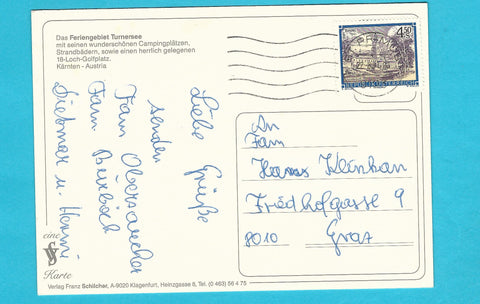 Das Feriengebiet Turnersee
mit seinen wunderschönen Campingplätzen,
Strandbädern, sowie einen herrlich gelegenen
18-Loch-Golfplatz.
Kärnten - Austria
Liebe Grüße
senden
Fam Obersaucher
Fam.
Dietmar u. Henni
4.50
REPUBLIK ÖSTERREICH
An
Fam
Hans Kleinhan
Friedhofgasse 9
8010 Graz
eine
Karte
Verlag Franz Schilcher, A-9020 Klagenfurt, Heinzgasse 8, Tel. (0 463) 56 4 75